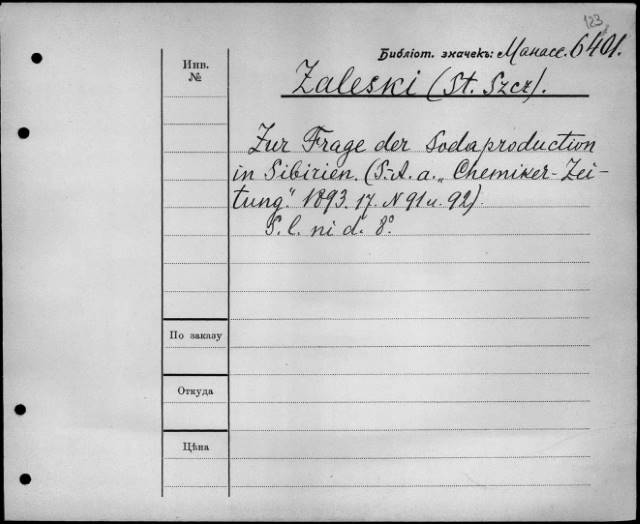 123
Библіот. значекъ: Манасс. 6401.
Инв.
№
Zaleski (St. Szcz).
Zur Frage der Sodaproduction
in Sibirien. (S.-A. a. „Chemiker-Zei-
tung". 1893. 17. N 91 u. 92).
S. l. ni d. 8°.
По заказу
Откуда
Цѣна